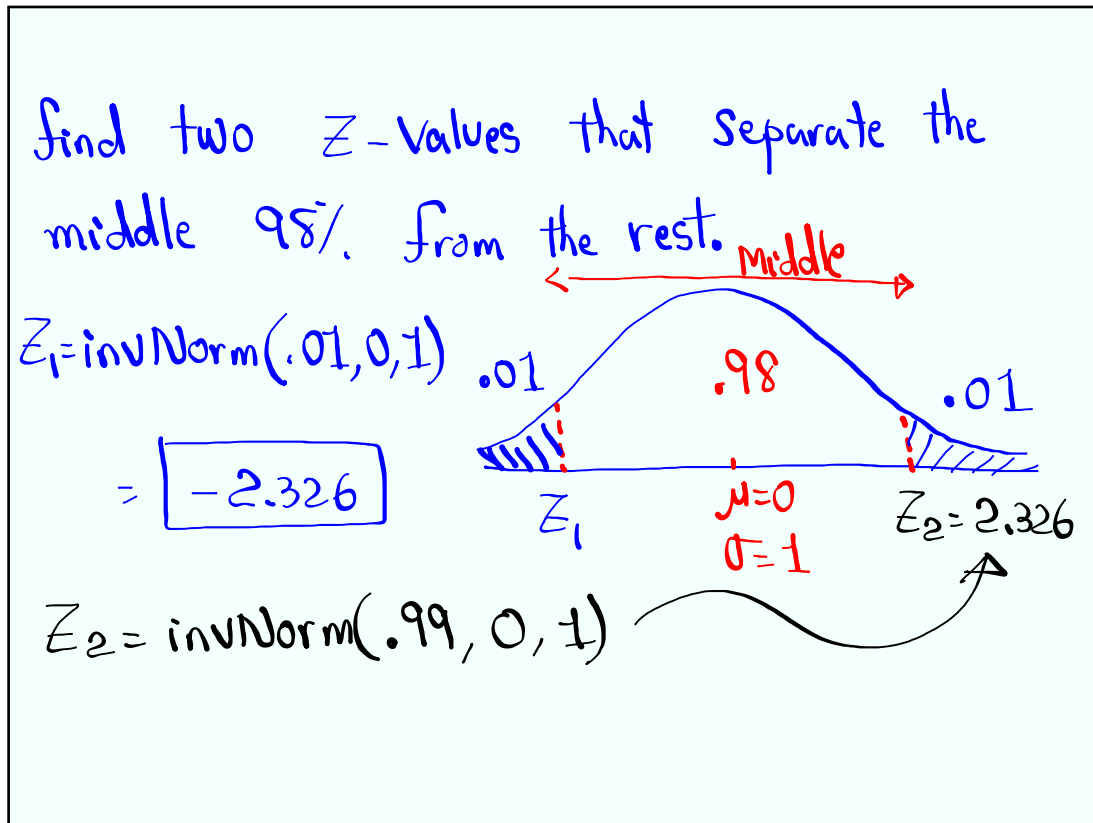 find two Z-Values that separate the
middle 98% from the rest.
Middle
Z₁=invNorm(.01,0,1)
.01
.98
.01
= -2.326
Z₁
μ=0
σ=1
Z₂=2.326
Z₂= invNorm(.99, 0, 1)